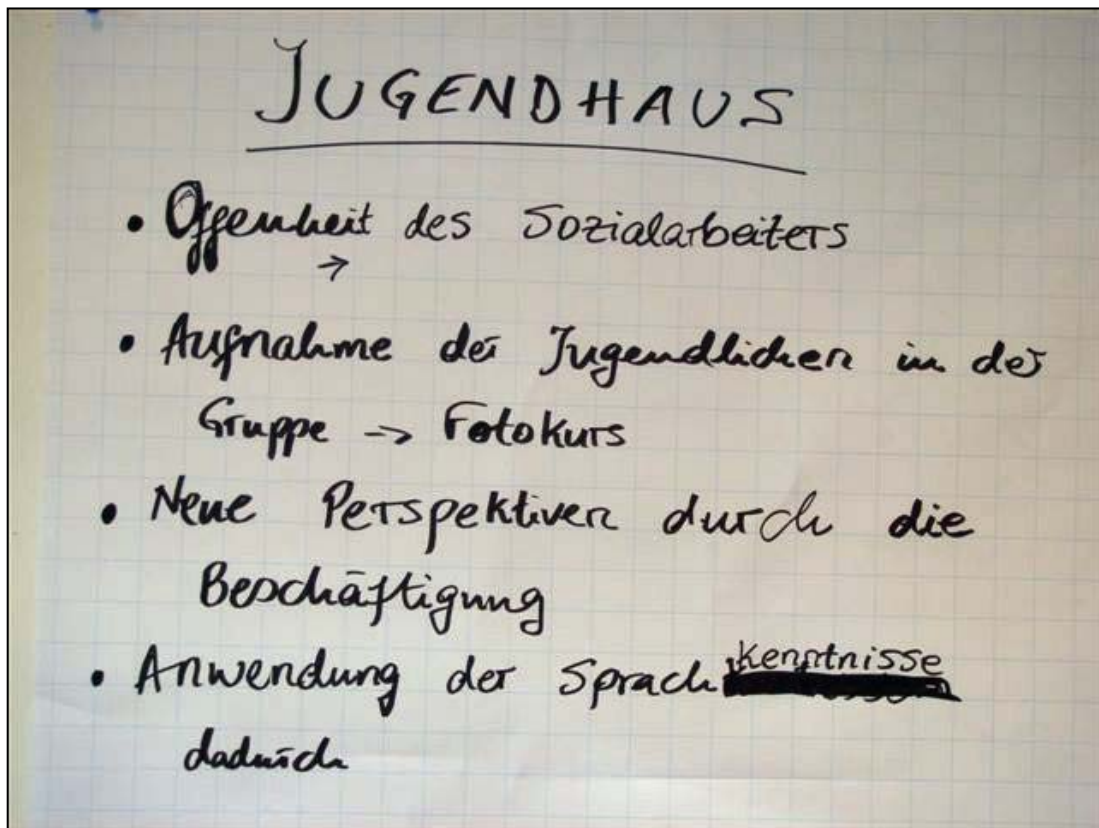 JUGENDHAUS
• Offenheit des Sozialarbeiters
→
• Aufnahme der Jugendlichen in der
Gruppe → Fotokurs
• Neue Perspektiven durch die
Beschäftigung
• Anwendung der Sprachkenntnisse
dadurch